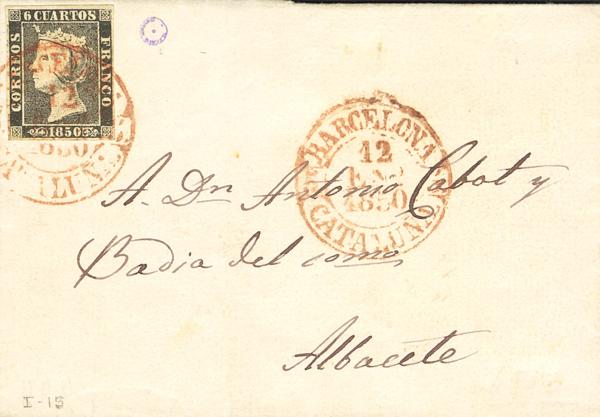 6 CUARTOS
CORREOS
FRANCO
1850
BARCELONA
12
1850
CATALUÑA
A. Dn Antonio Cabot y
Badia del como,
Albacete
I-15